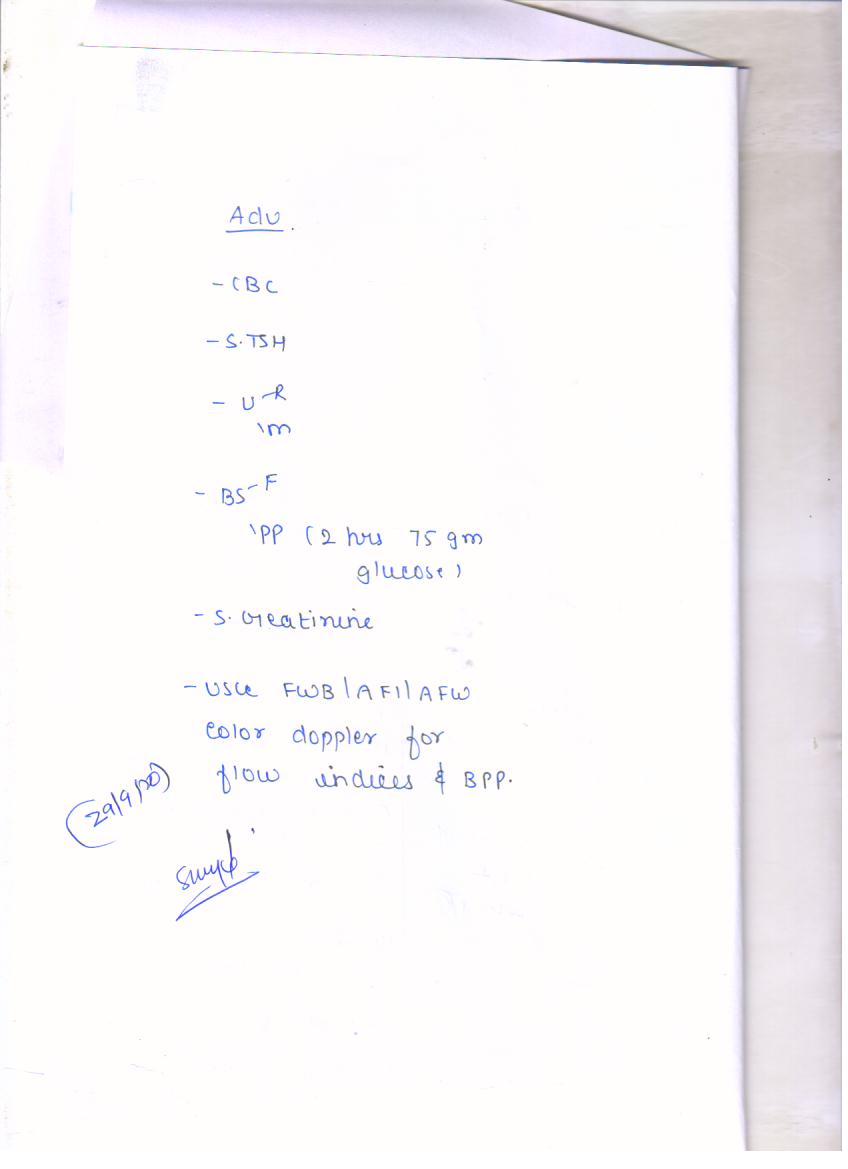 Adv.
- CBC
- S.TSH
- U - R
\ m
- BS - F
\ PP (2 hrs 75 gm
glucose)
- S. creatinine
- USG FWB | AFI | AFW
color doppler for
flow indices & BPP.